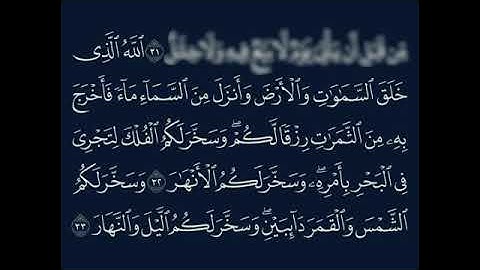 ٣١ ٱللَّهُ ٱلَّذِى
خَلَقَ ٱلسَّمَٰوَٰتِ وَٱلْأَرْضَ وَأَنزَلَ مِنَ ٱلسَّمَآءِ مَآءً فَأَخْرَجَ
بِهِۦ مِنَ ٱلثَّمَرَٰتِ رِزْقًا لَّكُمْ ۖ وَسَخَّرَ لَكُمُ ٱلْفُلْكَ لِتَجْرِىَ
فِى ٱلْبَحْرِ بِأَمْرِهِۦ ۖ وَسَخَّرَ لَكُمُ ٱلْأَنْهَٰرَ ٣٢ وَسَخَّرَ لَكُمُ
ٱلشَّمْسَ وَٱلْقَمَرَ دَآئِبَيْنِ ۖ وَسَخَّرَ لَكُمُ ٱلَّيْلَ وَٱلنَّهَارَ ٣٣